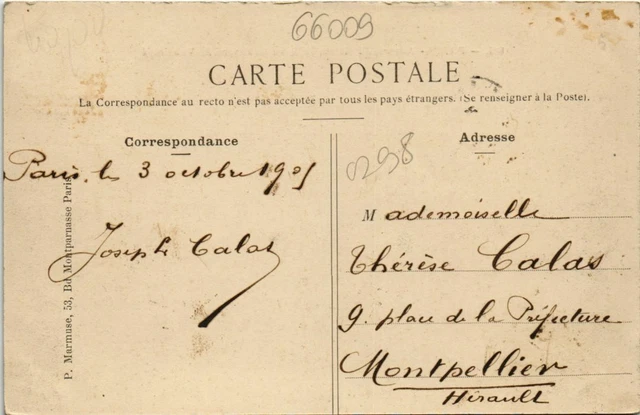 66009
CARTE POSTALE
La Correspondance au recto n'est pas acceptée par tous les pays étrangers. (Se renseigner à la Poste).
Correspondance
Paris, le 3 octobre 1905
Joseph Calas
P. Marmuse, 53, Bd Montparnasse Paris
Adresse
0298
Mademoiselle
Thérèse Calas
9. place de la Préfecture
Montpellier
Hérault